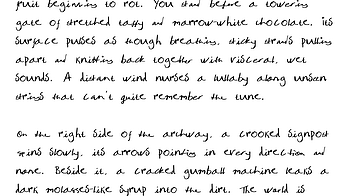 fruit beginning to rot. You stand before a towering
gate of stretched taffy and marrow-white chocolate, its
surface pulses as though breathing, sticky strands pulling
apart and knitting back together with visceral, wet
sounds. A distant wind nurses a lullaby along unseen
strings that can't quite remember the tune.
On the right side of the archway, a crooked signpost
spins slowly, its arrows pointing in every direction and
none. Beside it, a cracked gumball machine leaks a
dark molasses-like syrup into the dirt. The world is